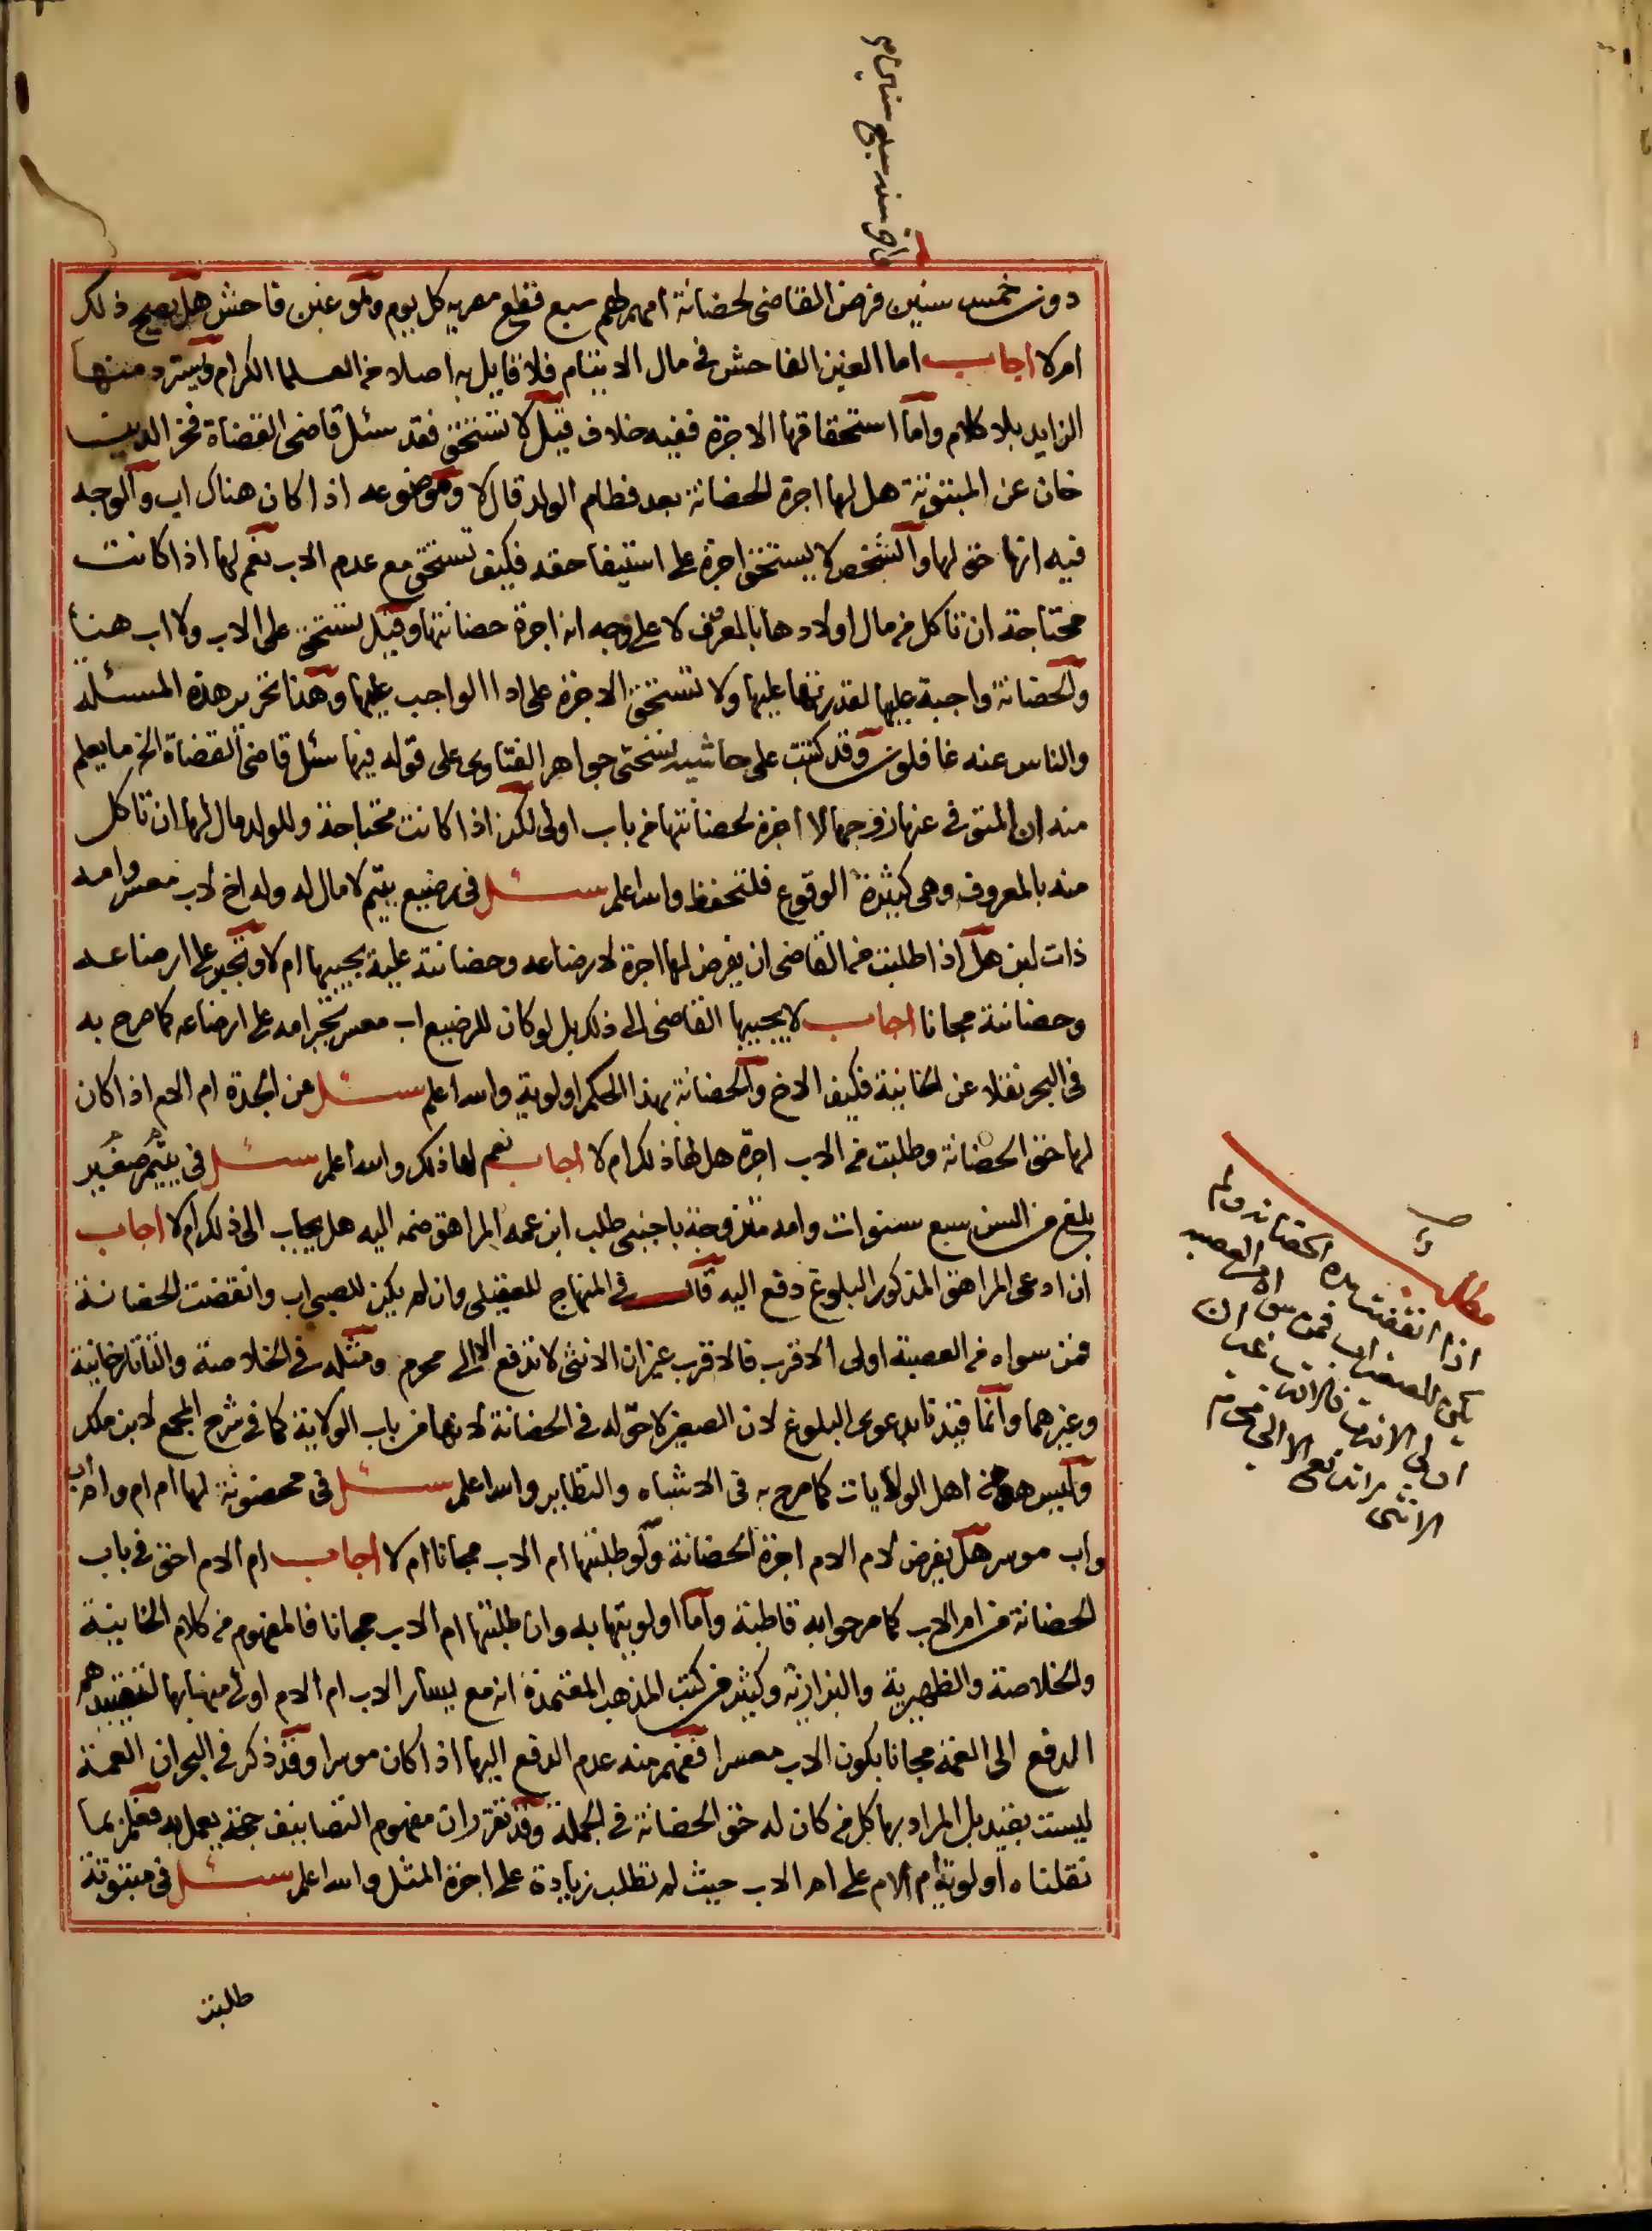 دون خمس سنين فرض القاضى لحضانة امهم لهم سبع قطع مصريه كل يوم وهو غبن فاحش هل يصح ذلك
ام لا اجاب اما الغبن الفاحش فى مال الايتام فلا قايل به اصلا من العلما الكرام فيسترد منها
الزايد بلا كلام واما استحقاقها الاجرة ففيه خلاف قيل لا تستحق فقد سئل قاضى القضاة فخر الدين
خان عن المبتوتة هل لها اجرة الحضانة بعد فطام الولد قال لا وموضوعه اذا كان هناك اب والوجه
فيه انها حق لها والشخص لا يستحق اجرة على استيفا حقه فكيف تستحق مع عدم الاب نعم لها اذا كانت
محتاجة ان تاكل من مال اولادها بالمعروف لا على وجه انه اجرة حضانتها وقيل تستحق على الاب ولا اب هنا
والحضانة واجبة عليها لقدرتها عليها ولا تستحق الاجرة على ادا الواجب عليها وهذا تحرير هذه المسئلة
والناس عنه غافلون وقد كتبت على حاشية نسختى جواهر الفتاوى على قوله فيها سئل قاضى القضاة الخ ما يعلم
منه ان المتوفى عنها زوجها لا اجرة لحضانتها من باب اولى لكن اذا كانت محتاجة وللولد مال لها ان تاكل
منه بالمعروف وهى كثيرة الوقوع فلتحفظ والله اعلم سئل فى رضيع يتيم لا مال له وله اخ لاب معسر وامه
ذات لبن هل اذا طلبت من القاضى ان يفرض لها اجرة لارضاعه وحضانته عليه يجيبها ام لا وتجبر على ارضاعه
وحضانته مجانا اجاب لا يجيبها القاضى الى ذلك بل لو كان للرضيع اب معسر تجبر امه على ارضاعه كما صرح به
فى البحر نقلا عن الخانية فكيف الاخ والحضانة بهذا الحكم اولوية والله اعلم سئل عن الجدة ام الام اذا كان
لها حق الحضانة وطلبت من الاب اجرة هل لها ذلك ام لا اجاب نعم لها ذلك والله اعلم سئل فى يتيم صغير
بلغ من السن سبع سنوات وامه متزوجة باجنبى طلب ابن عمه المراهق ضمه اليه هل يجاب الى ذلك ام لا اجاب
ان ادعى المراهق المذكور البلوغ دفع اليه قال فى المنهاج للعقيلى وان لم يكن للصبى اب وانقضت الحضانة
فمن سواه من العصبة اولى الاقرب فالاقرب غير ان الانثى لا تدفع الا الى محرم ومثله فى الخلاصة والتاتارخانية
وغيرهما وانما قيدنا بدعوى البلوغ لان الصغير لا حق له فى الحضانة لانها من باب الولاية كما فى شرح المجمع لابن ملك
وليس هو من اهل الولايات كما صرح به فى الاشباه والنظاير والله اعلم سئل فى محضونة لها ام ام وام اب
واب موسر هل يفرض لام الام اجرة الحضانة ولو طلبتها ام الاب مجانا ام لا اجاب ام الام احق فى باب
الحضانة من ام الاب كما صرحوا به قاطبة واما اولويتها به وان طلبتها ام الاب مجانا فالمفهوم من كلام الخانية
والخلاصة والظهيرية والبزازية وكثير من كتب المذهب المعتمدة انه مع يسار الاب ام الام اولى منها بها لتقييدهم
الدفع الى العمة مجانا بكون الاب معسرا فيفهم منه عدم الدفع اليها اذا كان موسرا وقد ذكر فى البحر ان العمة
ليست بقيد بل المراد بها كل من كان له حق الحضانة فى الجملة وقد تقرر ان مفهوم التصانيف حجة يعمل به فعلم بما
نقلناه اولوية ام الام على ام الاب حيث لم تطلب زيادة على اجرة المثل والله اعلم سئل فى مبتوتة
طلبت
مطلب
اذا انقضت مدة الحضانة ولم
يكن للصغير اب فمن سواه من العصبة
اولى الاقرب فالاقرب غير ان
الانثى لا تدفع الا الى محرم